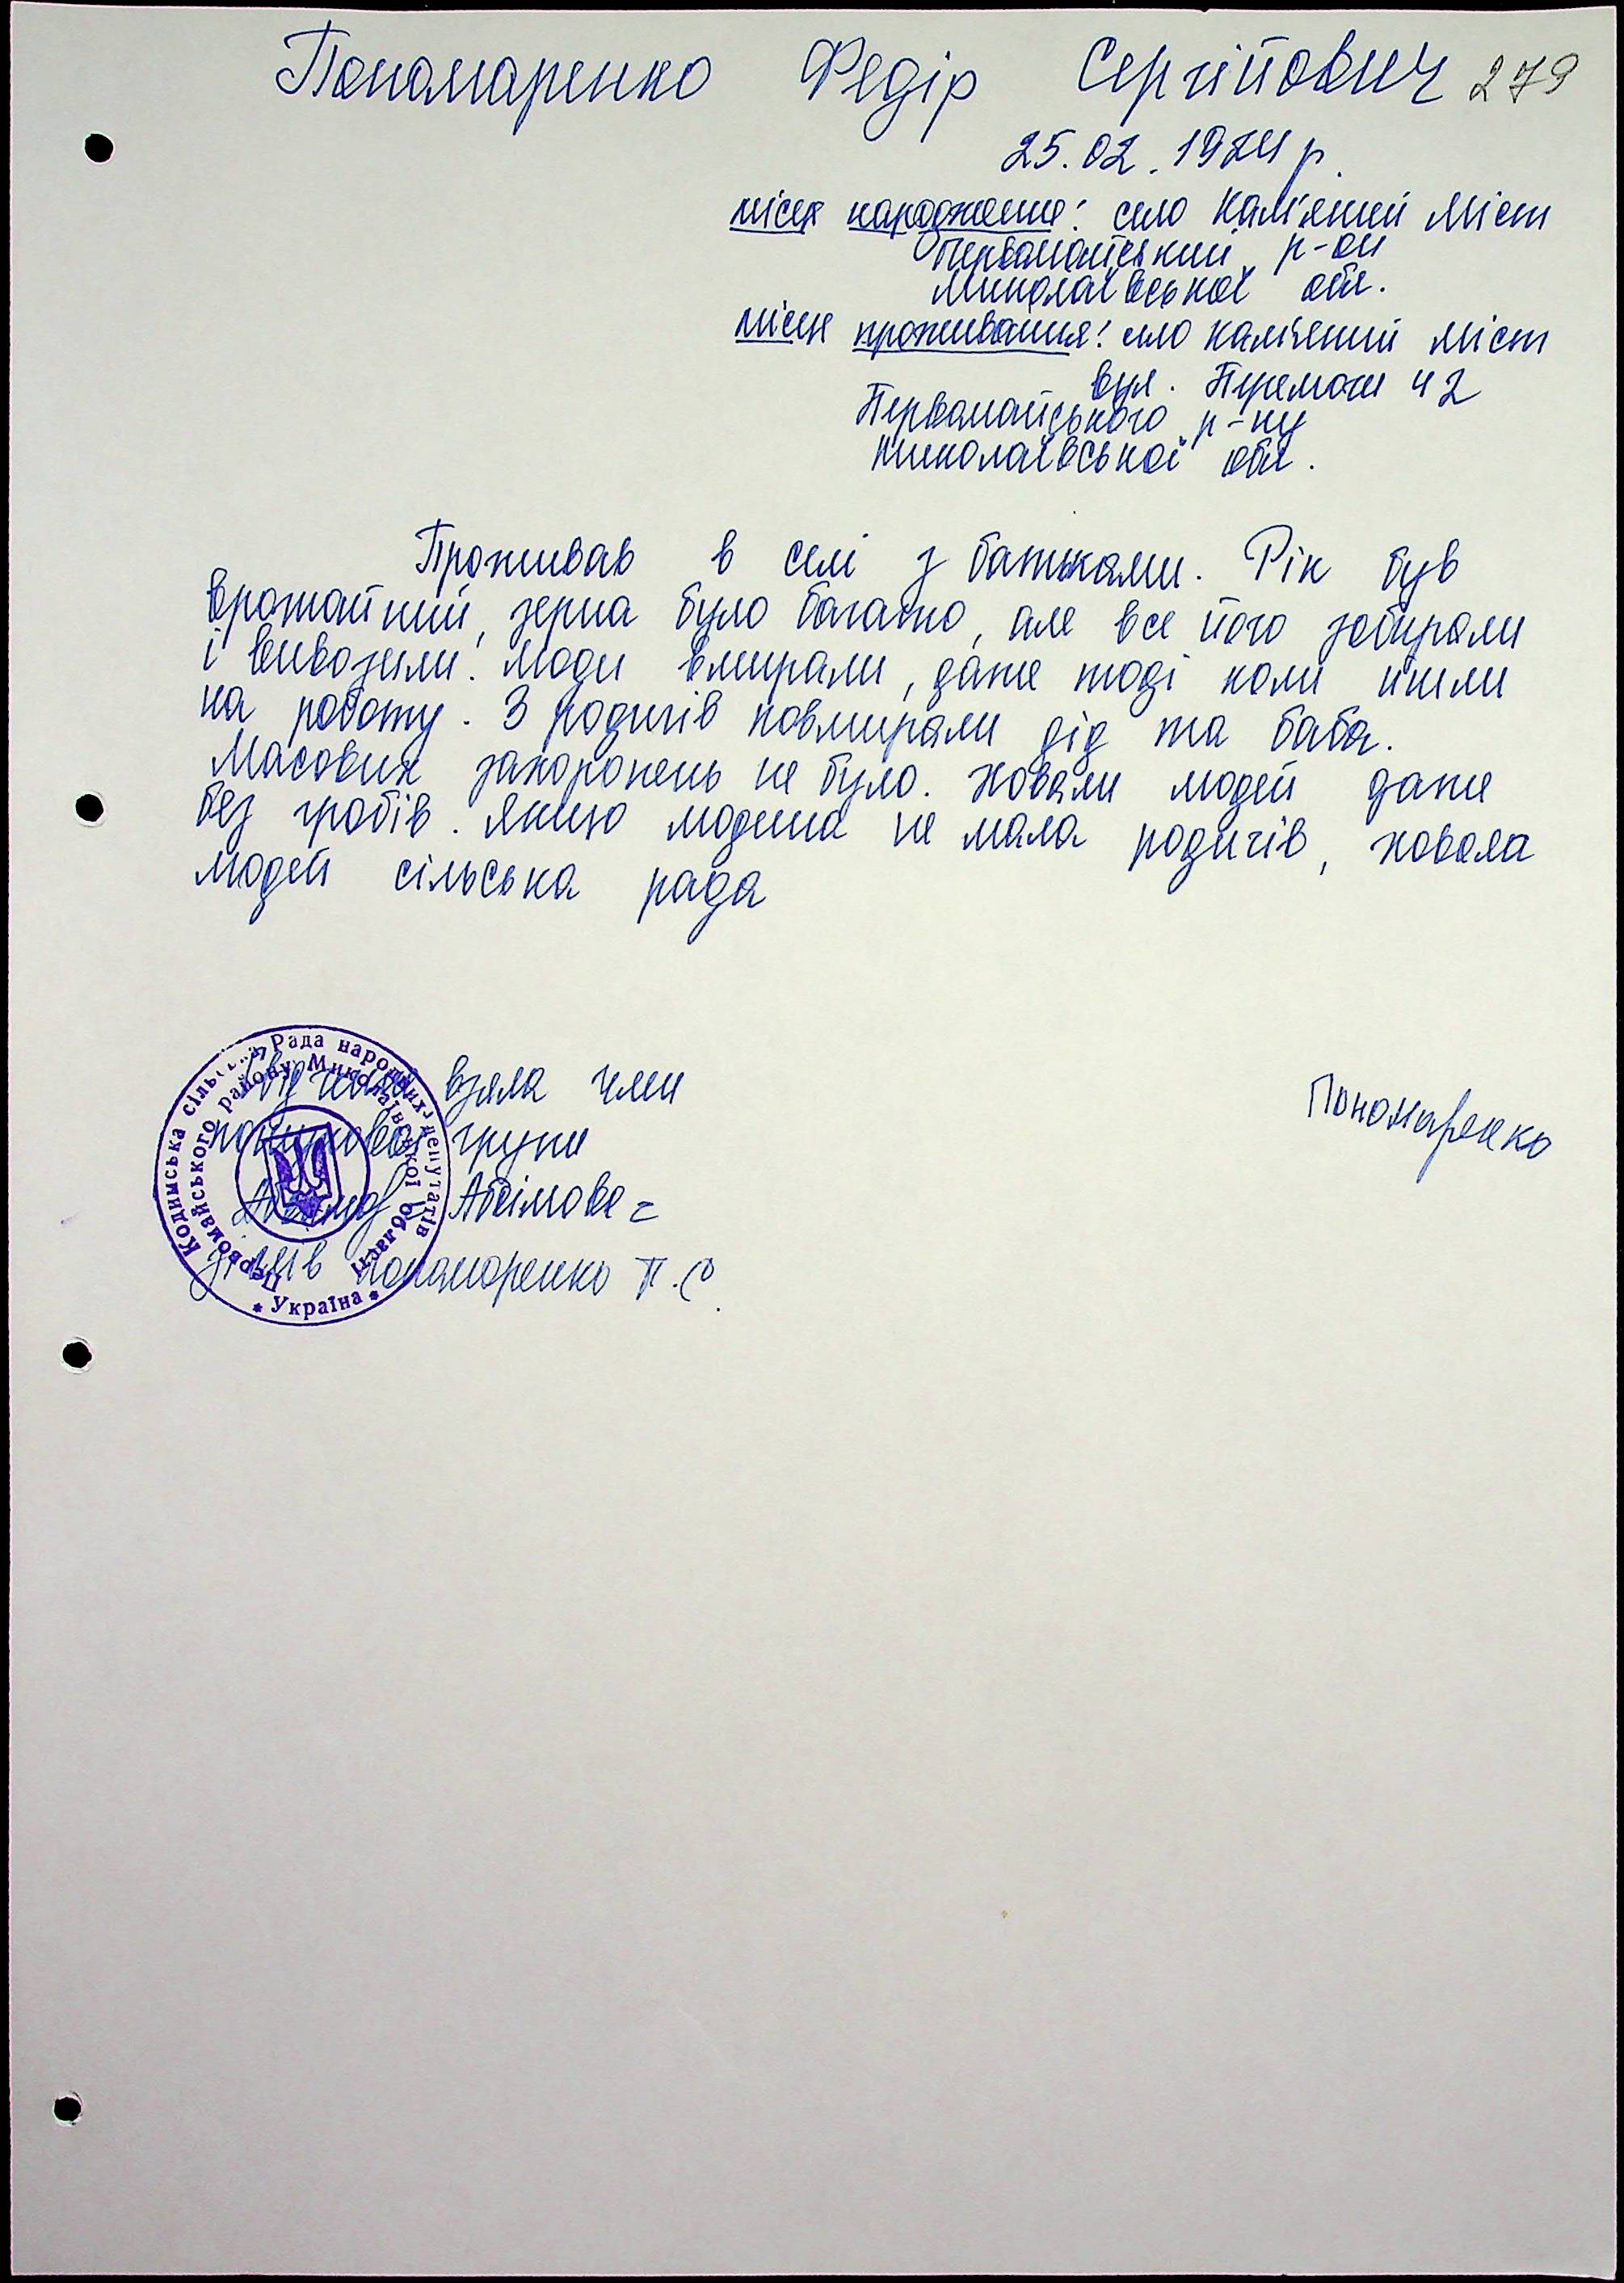 Пономаренко Федір Сергійович 279
25.02.1924 р.
місце народження: село Кам'яний Міст
Первомайський р-он
Миколаївської обл.
місце проживання: село Кам'яний Міст
вул. Перемоги 42
Первомайського р-ну
Миколаївської обл.
Проживав в селі з батьками. Рік був
врожайний, зерна було багато, але все його забирали
і вивозили. Люди вмирали, даже тоді коли йшли
на роботу. З родичів повмирали дід та баба.
Масових захоронень не було. Ховали людей даже
без гробів. Якщо людина не мала родичів, ховала
людей сільська рада
взяла член
пошукової групи
Абсімова
Пономаренко
Пономаренко
Кодимська сільська Рада народних депутатів
Первомайського району Миколаївської області
* Україна *